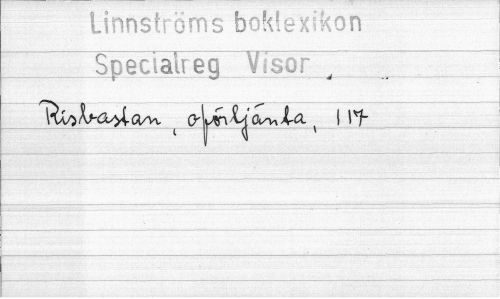 Linnströms boklexikon
Specialreg Visor
Risbastan, oförtjänta, 117